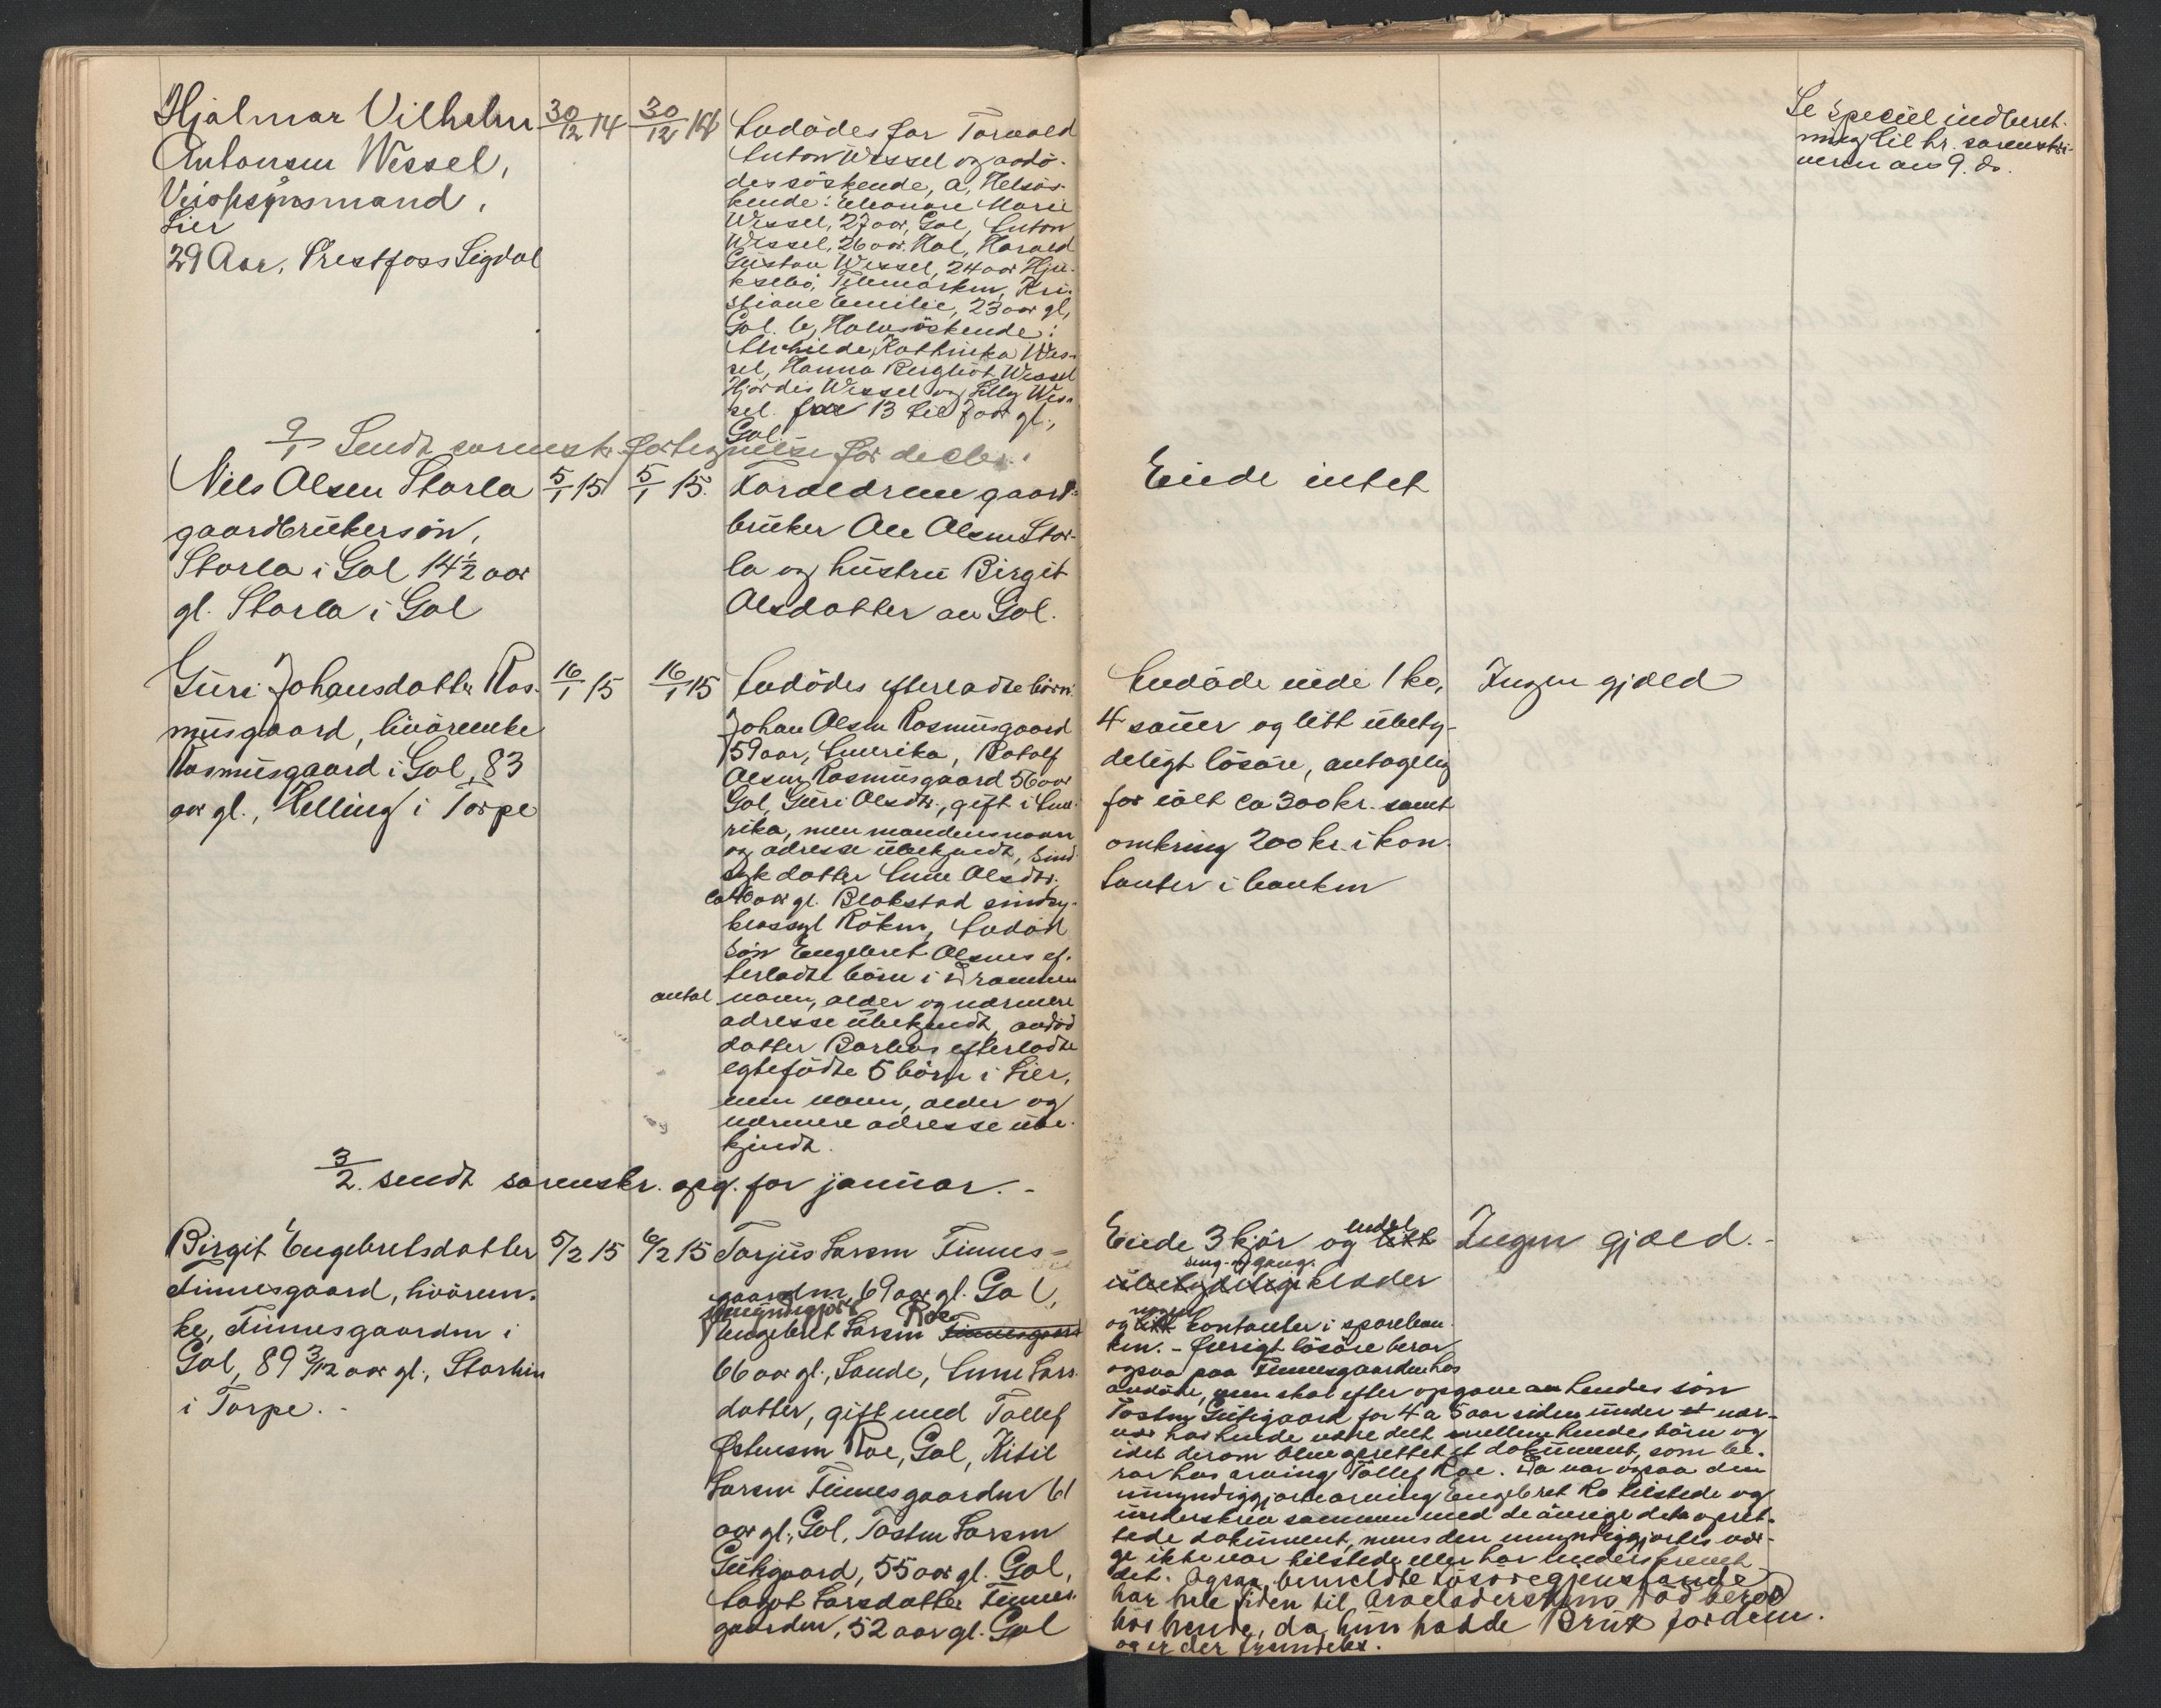 Hjalmar Vilhelm
Antonsen Wessel,
Veiopsynsmand,
Lier
29 Aar, Prestfoss Sigdal
30/12 14
30/12 14
Avdödes far Torvald
Anton Wessel og avdö-
des söskende, a, Helsös-
kende: Eleonore Marie
Wessel, 27 aar, Gol, Anton
Wessel, 26 aar. Hol, Harald
Gustav Wessel, 24 aar Hju-
ksebö, Telemarken, Kri-
stiane Emilie, 23 aar gl,
Gol. b, Halvsöskende:
Alvhilde, Kathinka Wes-
sel, Hanna Bergliot Wessel
Hjördis Wessel og Lilly Wes-
sel. fra 13 til 7 aar gl.,
Gol.
Se speciel indberet-
ning til hr. sorenskri-
veren av 9. ds.
9/1 Sendt sorenskr. fortegnelse for decbr.
Nils Olsen Storla
gaardbrukersön,
Storla i Gol 14 1/2 aar
gl. Storla i Gol
5/1 15
5/1 15.
Foreldrene gaard-
bruker Ole Olsen Stor-
la og hustru Birgit
Olsdatter av Gol.
Eiede intet
Guri Johansdatter Ras-
musgaard, livörenke
Rasmusgaard i Gol, 83
aar gl., Helling i Torpe
16/1 15
16/1 15
Avdödes efterladte börn:
Johan Olsen Rasmusgaard
59 aar, Amerika, Botolf
Olsen Rasmusgaard 56 aar
Gol, Guri Olsdtr., gift i Ame-
rika, men mandens navn
og adresse ubekjendt, sind-
syk datter Anne Olsdtr.
ca 40 aar gl. Blakstad sindsy-
keasyl Röken, Avdöd
sön Engebret Olsens ef-
terladte börn i Drammen
antal navn, alder og nærmere
adresse ubekjendt, avdöd
datter Barbos efterladte
egtefödte 5 börn i Lier,
men navn, alder og
nærmere adresse ube-
kjendt.
Avdöde eiede 1 ko,
4 sauer og litt ubety-
deligt lösöre, antagelig
for ialt ca 300 kr. samt
omkring 200 kr. i kon-
tanter i banken
Ingen gjæld
3/2. sendt sorenskr. opg. for januar. -
Birgit Engebretsdatter
Finnesgaard, livören-
ke, Finnesgaarden i
Gol, 89 3/12 aar gl., Storlien
i Torpe. -
5/2 15
6/2 15
Tarjus Larsen Finnes-
gaarden, 69 aar gl. Gol,
umyndiggjort Roe
Engebret Larsen Finnesgaard
66 aar gl., Sande, Anne Lars-
datter, gift med Tollef
Østensen Roe, Gol, Kitil
Larsen Finnesgaarden 61
aar gl., Gol, Tosten Larsen
Gutigaard, 55 aar gl. Gol,
Aagot Larsdatter Finnes-
gaarden, 52 aar gl. Gol
Eiede 3 kjör og endel litt
seng- og gang-
ubetydelige klæder
og noget litt kontanter i spareban-
ken. - Övrigt lösöre beror
ogsaa paa Finnesgaarden hos
avdöde, men skal efter opgave av hendes sön
Tosten Gutigaard for 4 a 5 aar siden under et nær-
vær hos hende være delt mellem hendes börn og
idet derom blev oprettet et dokument, som be-
ror hos arving Tollef Roe. Da var ogsaa den
umyndiggjorte arving Engebret Ro tilstede og
underskrev sammen med de övrige dets opret-
tede dokument, mens den umyndiggjortes vær-
ge ikke var tilstede eller har underskrevet
det. Ogsaa bemeldte lösöregjenstande
har hele tiden til arveladerskens död beroed
hos hende, da hun hadde Bruk for dem.
og er der fremdeles.
Ingen gjæld. -